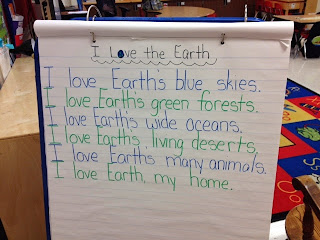 I Love the Earth
I love Earth's blue skies.
I love Earth's green forests.
I love Earth's wide oceans.
I love Earth's living deserts.
I love Earth's many animals.
I love Earth, my home.